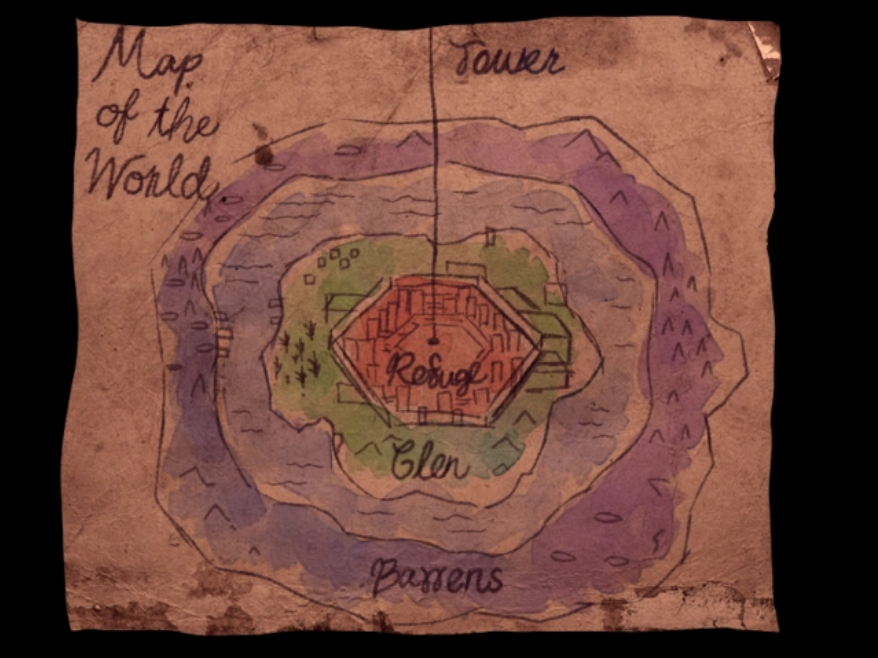 Map
of the
World
Tower
Refuge
Glen
Barrens